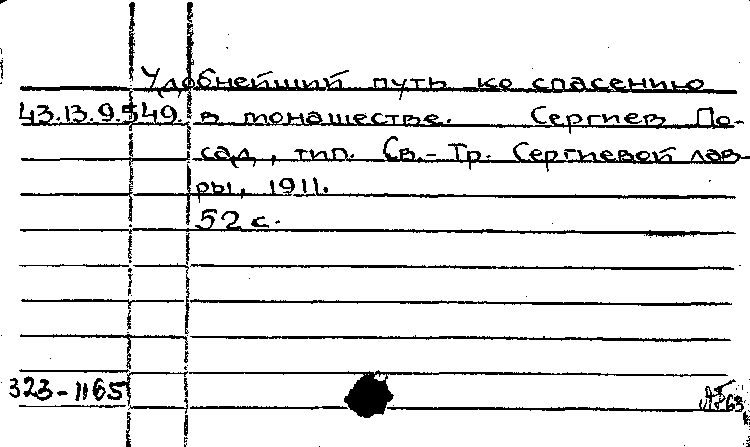 Удобнейший путь ко спасению
43.13.9.549. в монашестве. Сергиев По-
сад, тип. Св.-Тр. Сергиевой лав-
ры, 1911.
52 с.
323-1165
63